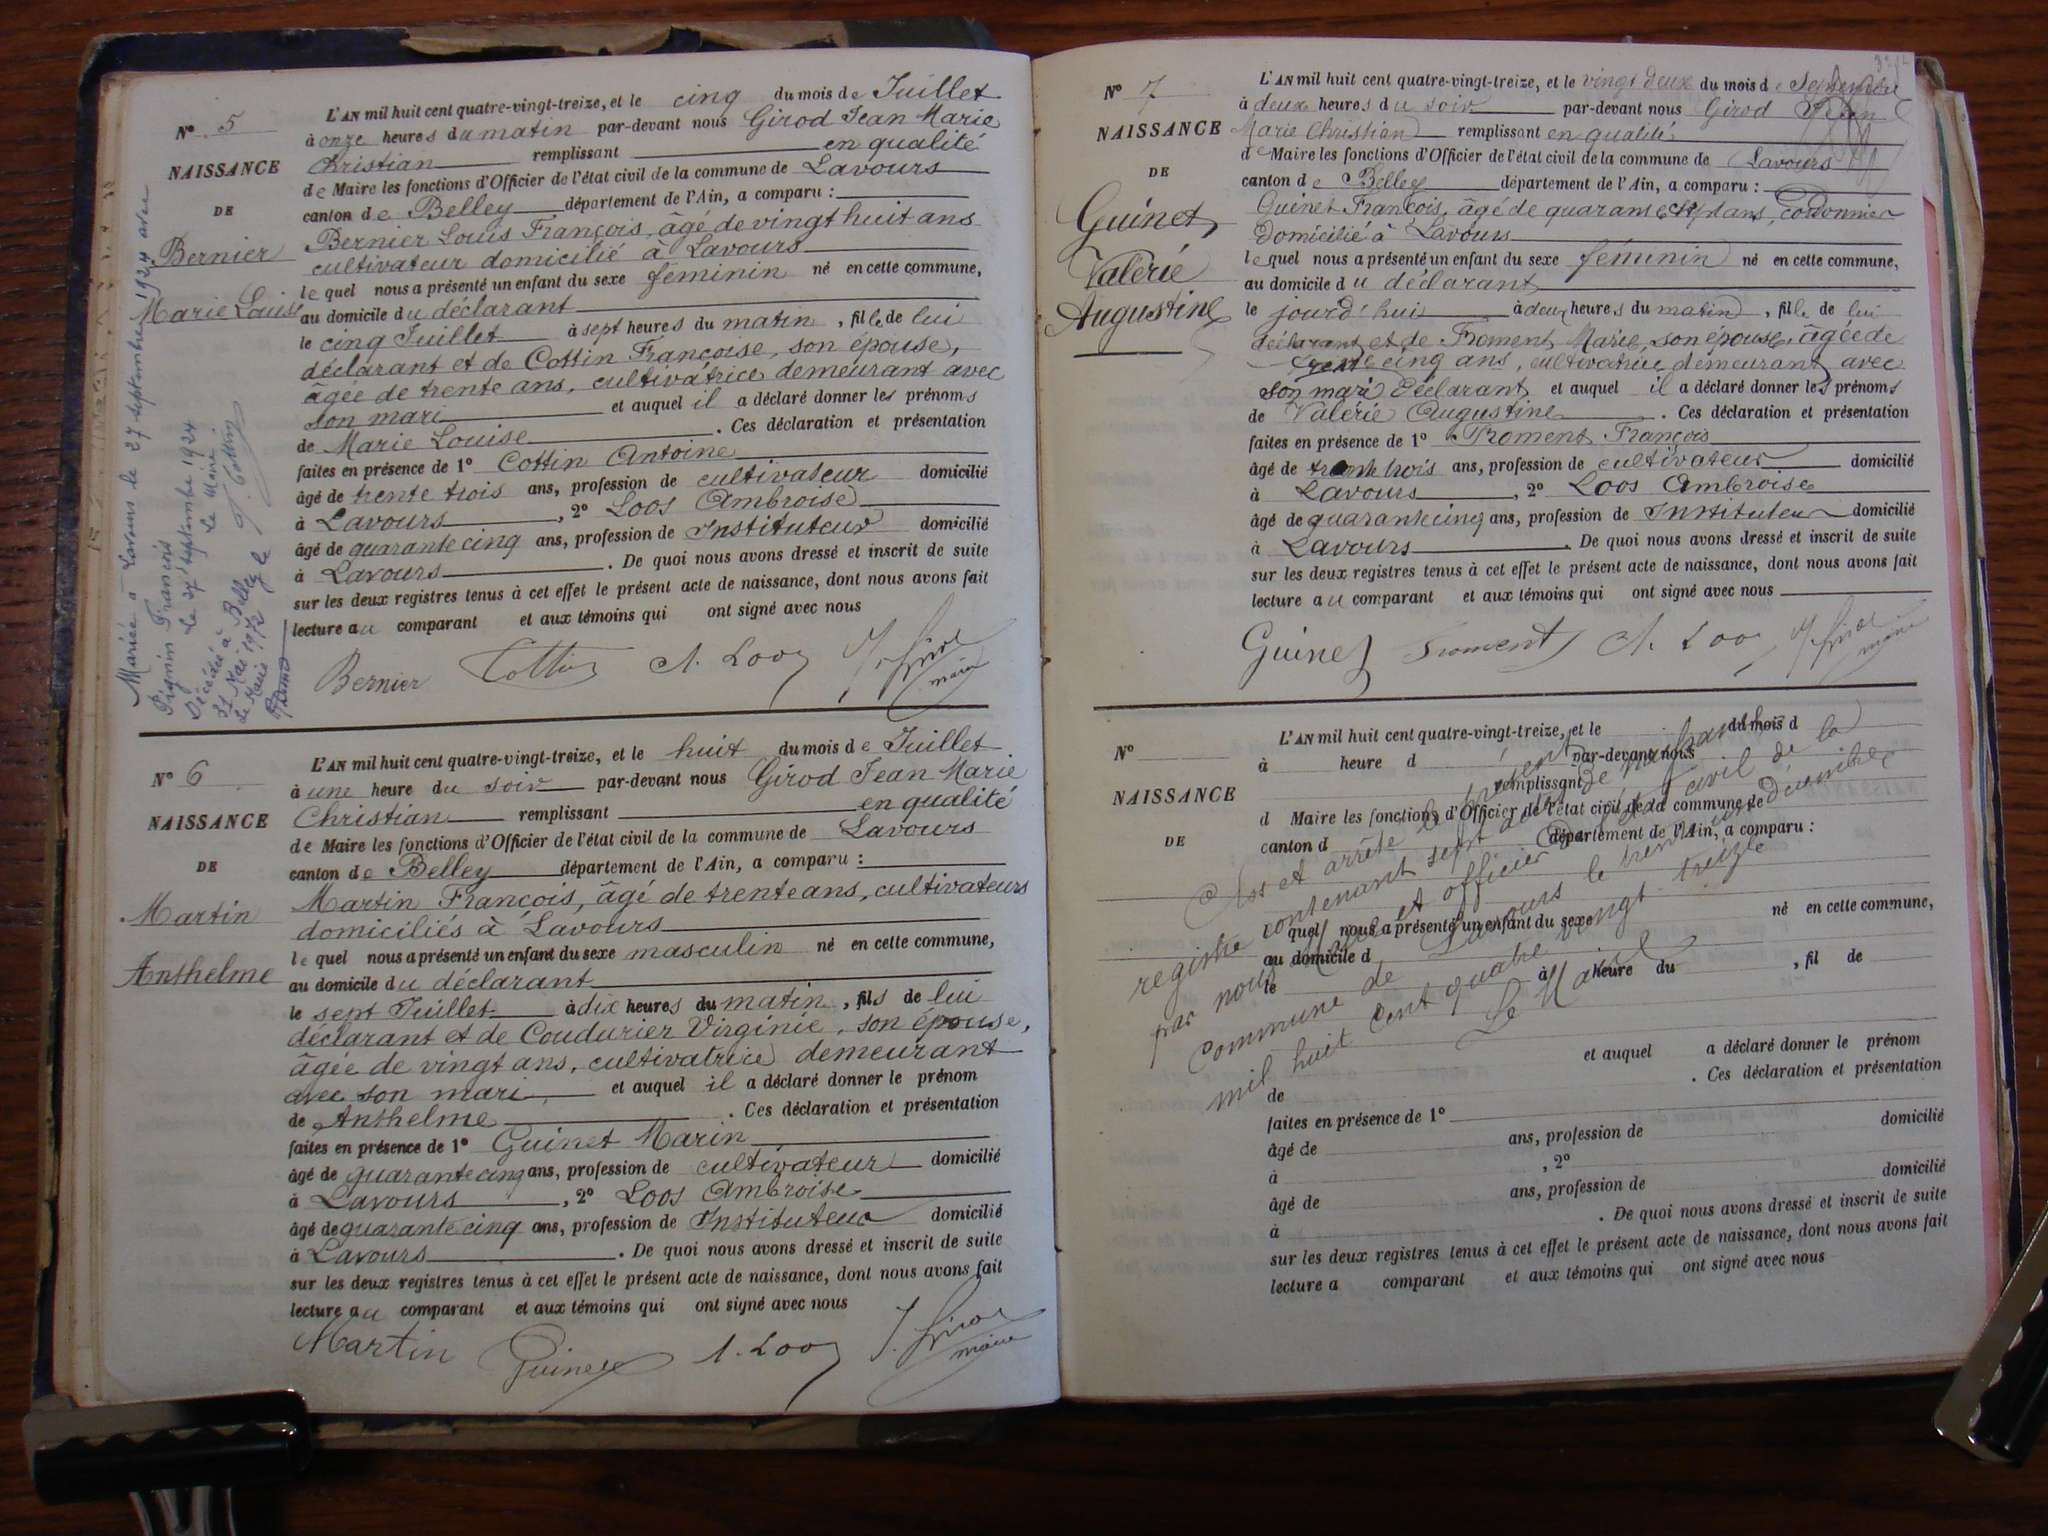 Nº 5
NAISSANCE
DE
Bernier
Marie Louise
Mariée à Lavours le 27 septembre 1924 avec
Pignin François
Le 27 septembre 1924
Le Maire
F. Cottin
Décédée à Belley le
31 Mai 1972
Le Maire
L'AN mil huit cent quatre-vingt-treize, et le cinq du mois de Juillet
à onze heures du matin par-devant nous Girod Jean Marie
Christian remplissant en qualité
de Maire les fonctions d'Officier de l'état civil de la commune de Lavours
canton de Belley département de l'Ain, a comparu :
Bernier Louis François, âgé de vingt huit ans
cultivateur domicilié à Lavours
le quel nous a présenté un enfant du sexe féminin né en cette commune,
au domicile du déclarant
le cinq Juillet à sept heures du matin, fille de lui
déclarant et de Cottin Françoise, son épouse,
âgée de trente ans, cultivatrice demeurant avec
son mari et auquel il a déclaré donner les prénoms
de Marie Louise. Ces déclaration et présentation
faites en présence de 1º Cottin Antoine
âgé de trente trois ans, profession de cultivateur domicilié
à Lavours, 2º Loos Ambroise
âgé de quarante cinq ans, profession de Instituteur domicilié
à Lavours. De quoi nous avons dressé et inscrit de suite
sur les deux registres tenus à cet effet le présent acte de naissance, dont nous avons fait
lecture au comparant et aux témoins qui ont signé avec nous
Bernier Cottin A. Loos J. Girod
maire
Nº 6
NAISSANCE
DE
Martin
Anthelme
L'AN mil huit cent quatre-vingt-treize, et le huit du mois de Juillet
à une heure du soir par-devant nous Girod Jean Marie
Christian remplissant en qualité
de Maire les fonctions d'Officier de l'état civil de la commune de Lavours
canton de Belley département de l'Ain, a comparu :
Martin François, âgé de trente ans, cultivateurs
domiciliés à Lavours
le quel nous a présenté un enfant du sexe masculin né en cette commune,
au domicile du déclarant
le sept Juillet à dix heures du matin, fils de lui
déclarant et de Coudurier Virginie, son épouse,
âgée de vingt ans, cultivatrice demeurant
avec son mari et auquel il a déclaré donner le prénom
de Anthelme. Ces déclaration et présentation
faites en présence de 1º Guinet Marin
âgé de quarante cinq ans, profession de cultivateur domicilié
à Lavours, 2º Loos Ambroise
âgé de quarante cinq ans, profession de Instituteur domicilié
à Lavours. De quoi nous avons dressé et inscrit de suite
sur les deux registres tenus à cet effet le présent acte de naissance, dont nous avons fait
lecture au comparant et aux témoins qui ont signé avec nous
Martin Guinet A. Loos J. Girod
maire
Nº 7
NAISSANCE
DE
Guinet
Valérie
Augustine
L'AN mil huit cent quatre-vingt-treize, et le vingt deux du mois de Septembre
à deux heures du soir par-devant nous Girod Jean
Marie Christian remplissant en qualité
de Maire les fonctions d'Officier de l'état civil de la commune de Lavours
canton de Belley département de l'Ain, a comparu :
Guinet François, âgé de quarante sept ans, cordonnier
domicilié à Lavours
le quel nous a présenté un enfant du sexe féminin né en cette commune,
au domicile du déclarant
le jourd'hui à deux heures du matin, fille de lui
déclarant et de Froment Marie, son épouse, âgée de
trente cinq ans, cultivatrice demeurant avec
son mari déclarant et auquel il a déclaré donner les prénoms
de Valérie Augustine. Ces déclaration et présentation
faites en présence de 1º Froment François
âgé de trente trois ans, profession de cultivateur domicilié
à Lavours, 2º Loos Ambroise
âgé de quarante cinq ans, profession de Instituteur domicilié
à Lavours. De quoi nous avons dressé et inscrit de suite
sur les deux registres tenus à cet effet le présent acte de naissance, dont nous avons fait
lecture au comparant et aux témoins qui ont signé avec nous
Guinet Froment A. Loos J. Girod
maire
Nº
NAISSANCE
DE
L'AN mil huit cent quatre-vingt-treize, et le du mois d
à heure d par-devant nous
remplissant
d Maire les fonctions d'Officier de l'état civil de la commune de
canton d département de l'Ain, a comparu :
quel nous a présenté un enfant du sexe né en cette commune,
au domicile d
le à heure du, fil de
et auquel a déclaré donner le prénom
de. Ces déclaration et présentation
faites en présence de 1º
âgé de ans, profession de domicilié
à, 2º
âgé de ans, profession de domicilié
à. De quoi nous avons dressé et inscrit de suite
sur les deux registres tenus à cet effet le présent acte de naissance, dont nous avons fait
lecture a comparant et aux témoins qui ont signé avec nous
Clos et arrêté le présent
registre contenant sept actes de naissance
par nous Maire et officier de l'état civil de la
commune de Lavours le trente un décembre
mil huit cent quatre vingt treize
Le Maire